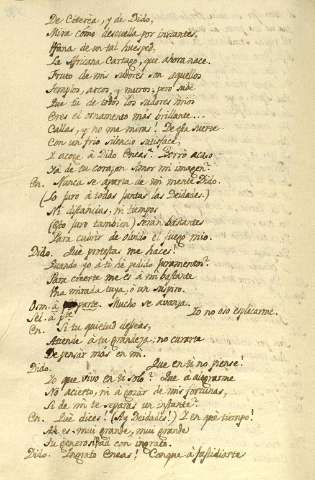 De Citerea, y de Dido,
Mira como descuella por instantes,
Ufana de un tal huesped,
La Africana Cartago, que ahora nace.
Fruto de mis sudores son aquellos
Templos, arcos, y muros; pero sabe
Que tu de todos los sudores mios
Eres el ornamento mas brillante...
Callas, y no me miras! De esta suerte
Con un frio silencio satisface,
Y acoje à Dido Eneas? Borró acaso
Ya de tu corazon amor mi imagen?
En. Nunca se aparta de mi mente Dido.
(Lo juro à todas juntas las Deidades.)
Ni distancias, ni tiempo,
(Esto juro tambien) serán bastantes
Para cubrir de olvido el fuego mio.
Dido. Què protestas me haces!
Quando yo à ti he pedido juramentos?
Para creerte me es à mi bastante
Una mirada tuya, ò un suspiro.
Osm. à parte. Mucho se avanza.
Sel. à pte. Yo no oso esplicarme.
En. Si tu quietud deseas,
Atiende à tu grandeza: no curarte
De pensar mas en mi.
Dido. Que en ti no piense!
Yo que vivo en ti solo? Que à alegrarme
No acierto, ni à gozar de mis fortunas,
Si de mi te separas un instante?
En. Què dices! (Ay Deidades!) Y en què tiempo!
Ah es mui grande, mui grande
Tu generosidad con ingrato.
Dido. Ingrato Eneas! Conque à fastidiarte